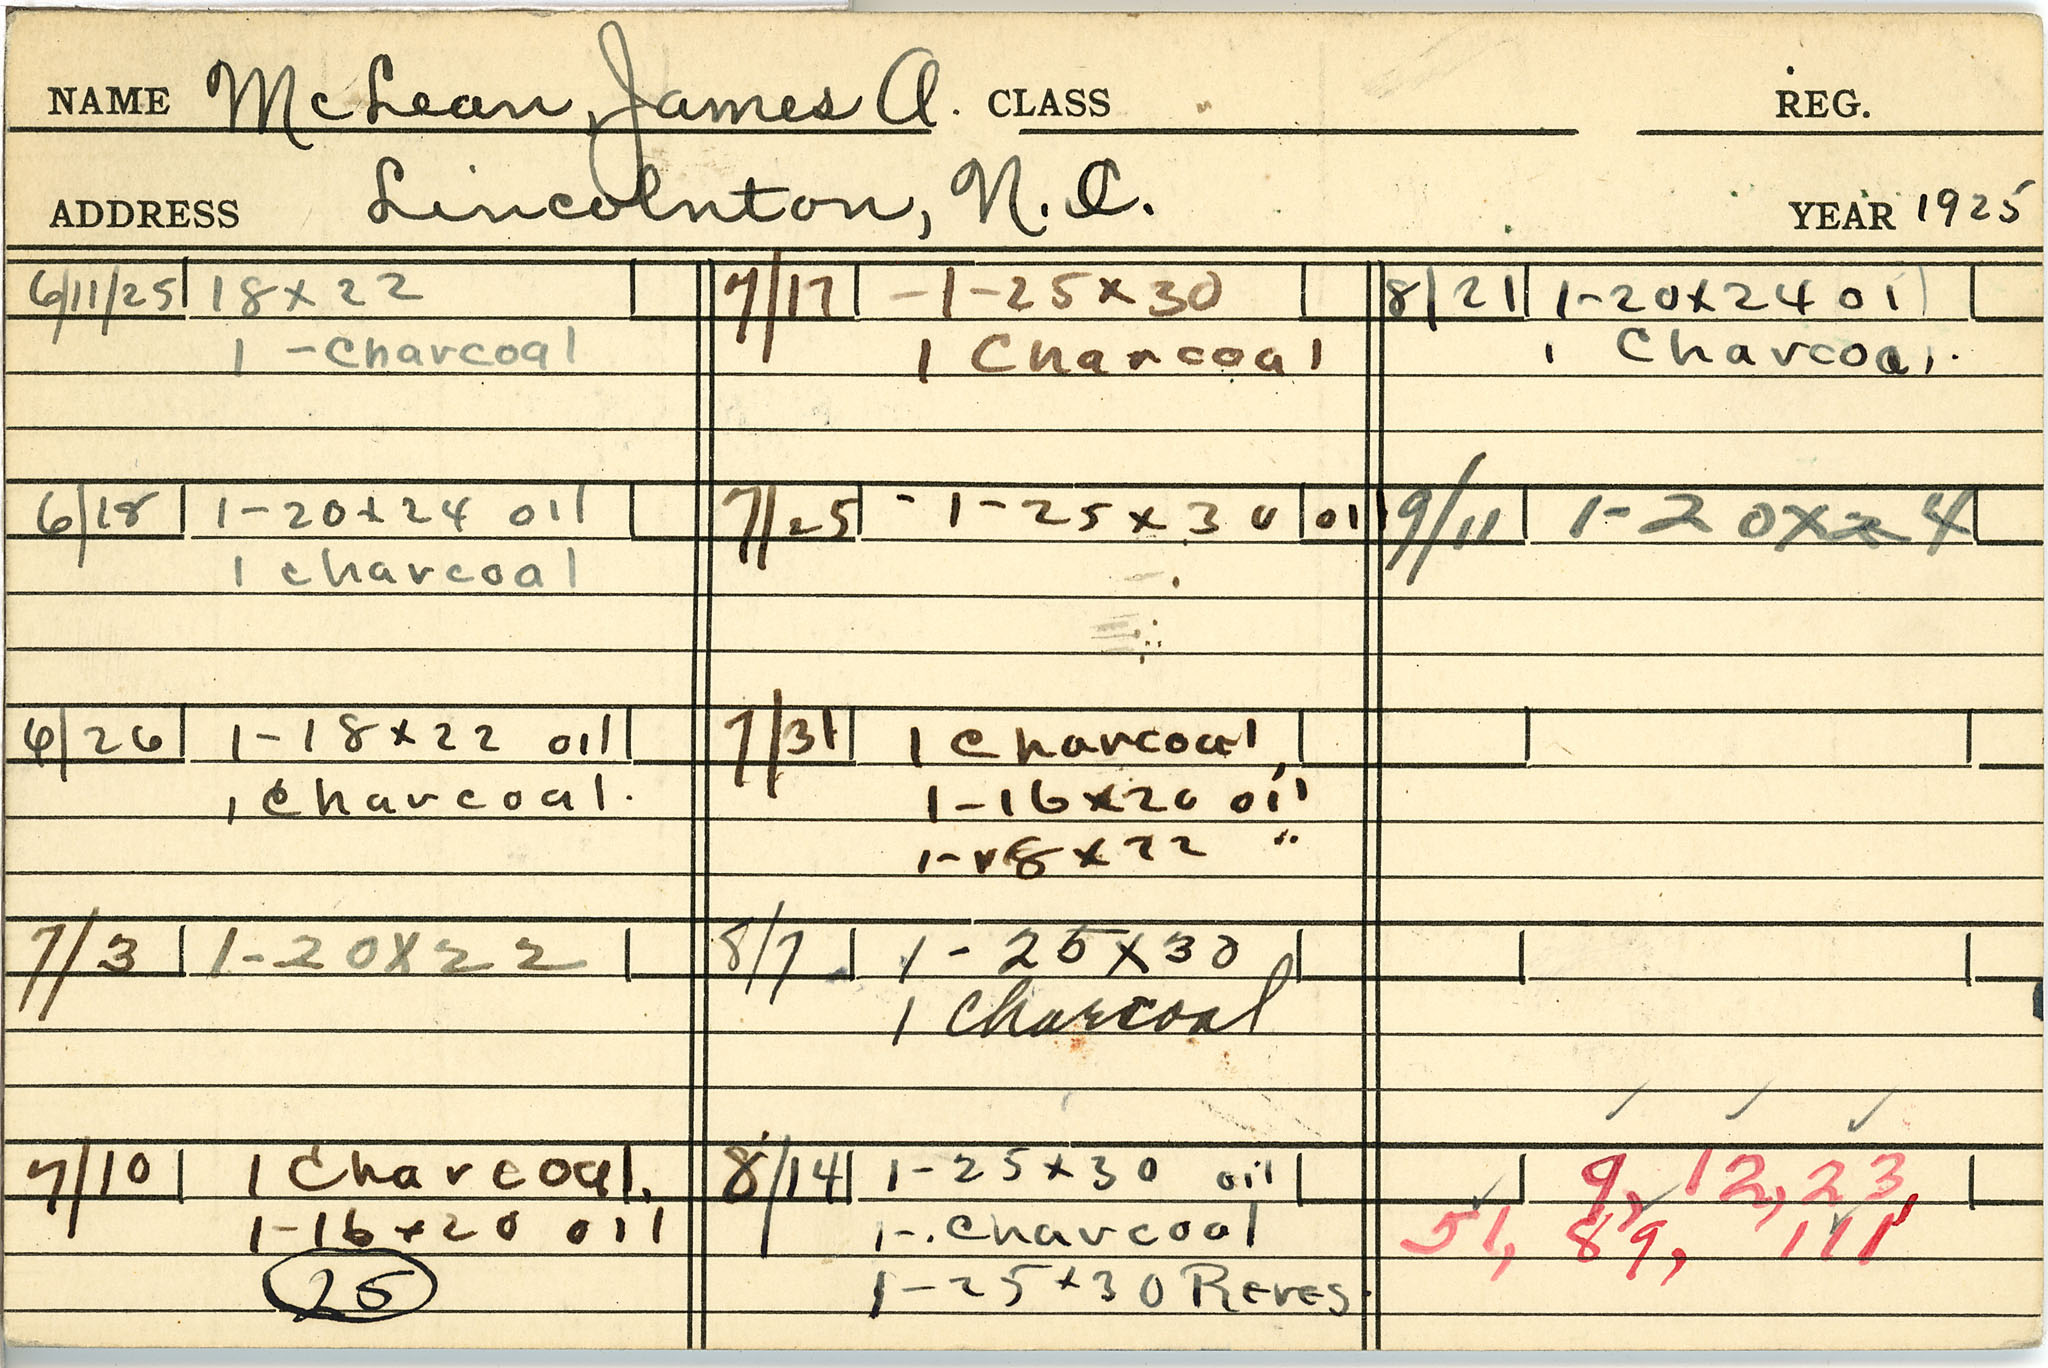 NAME McLean, James A. CLASS REG.
ADDRESS Lincolnton, N.C. YEAR 1925
6/11/25 18x22
1 - Charcoal
6/18 1-20x24 oil
1 charcoal
6/26 1-18x22 oil
1 charcoal.
7/3 1-20x22
7/10 1 Charcoal,
1-16x20 oil
25
7/17 -1-25x30
1 Charcoal
7/25 - 1-25x30 oil
7/31 1 charcoal,
1-16x20 oil
1-18x22 "
8/7 1-25x30
1 Charcoal
8/14 1-25x30 oil
1-. charcoal
1-25x30 Reves.
8/21 1-20x24 oil
1 Charcoal.
9/11 1-20x24
9, 12, 23,
51, 89, 111